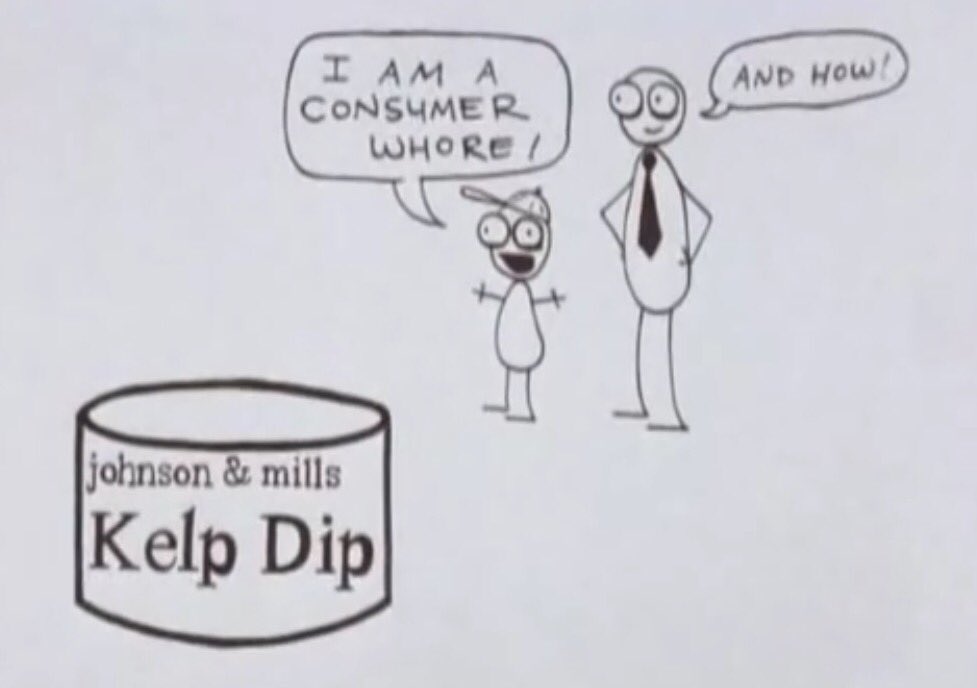 I AM A
CONSUMER
WHORE!
AND HOW!
johnson & mills
Kelp Dip